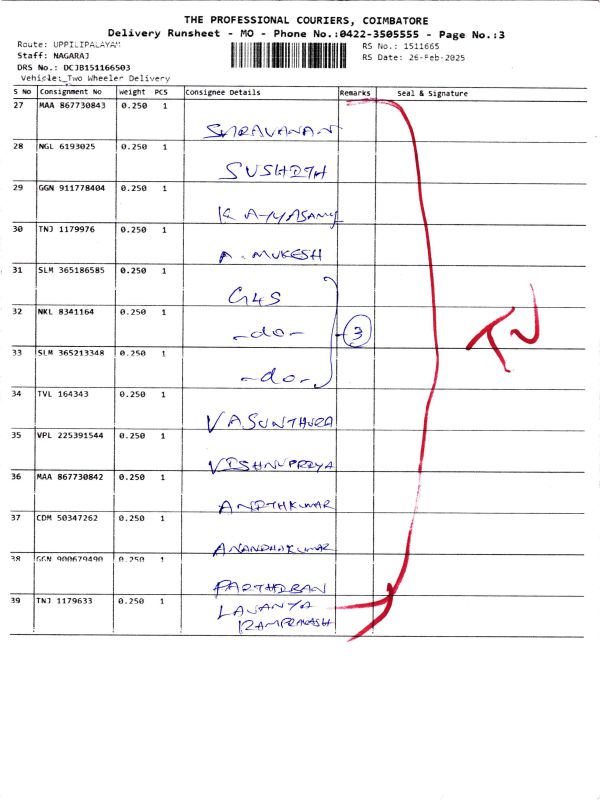 THE PROFESSIONAL COURIERS, COIMBATORE
Delivery Runsheet - MO - Phone No.:0422-3505555 - Page No.:3
Route: UPPILIPALAYAM RS No.: 1511665
Staff: NAGARAJ RS Date: 26-Feb-2025
DRS No.: DCJB151166503
Vehicle: Two Wheeler Delivery
S No Consignment No Weight PCS Consignee Details Remarks Seal & Signature
27 MAA 867730843 0.250 1
SARAVANAN
28 NGL 6193025 0.250 1
SUSHITH
29 GGN 911778404 0.250 1
30 TNJ 1179976 0.250 1
A. MUKESH
31 SLM 365186585 0.250 1
G4S
32 NKL 8341164 0.250 1
-do- 3
33 SLM 365213348 0.250 1
-do-
34 TVL 164343 0.250 1
VASUNTHURA
35 VPL 225391544 0.250 1
VISHNUPRIYA
36 MAA 867730842 0.250 1
ANITHKUMAR
37 CDM 50347262 0.250 1
ANANDHAKUMAR
38 GGN 900679490 0.250 1
PARTHIBAN
39 TNJ 1179633 0.250 1
LAVANYA
RAMPRAKASH